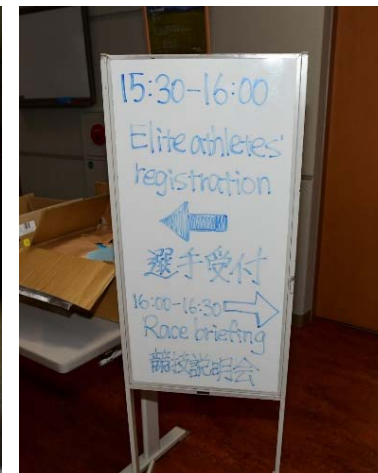 15:30-16:00
Elite athletes'
registration
選手受付
16:00-16:30
Race briefing
競技説明会